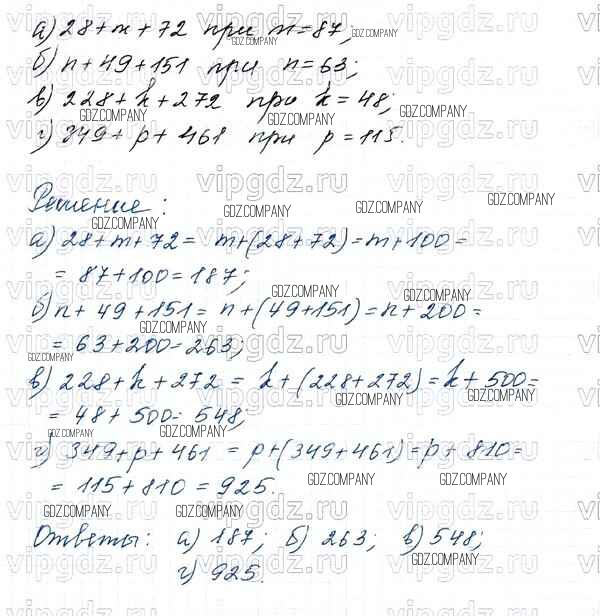 а) 28+m+72 при m=87;
б) n+49+151 при n=63;
в) 228+k+272 при k=48;
г) 349+p+461 при p=115.
Решение:
а) 28+m+72= m+(28+72)=m+100=
= 87+100=187;
б) n+49+151= n+(49+151)=n+200=
= 63+200=263;
в) 228+k+272 = k+(228+272)=k+500=
= 48+500=548;
г) 349+p+461 = p+(349+461)=p+810=
= 115+810=925.
Ответы: а) 187; б) 263; в) 548;
г) 925.